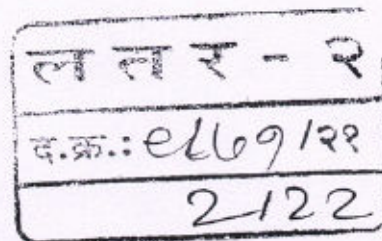 लतर - २
द.क्र.: ९८७१/२१
2/22